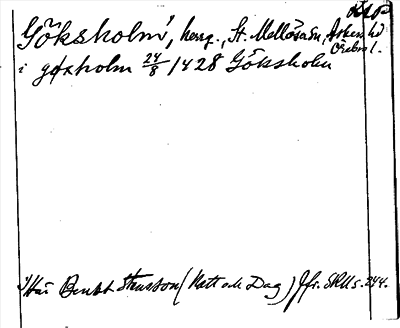 Göksholm¹, herrg., St. Mellösa sn, Askers hd
Örebro l.
i goxholm 24/8 1428 Göksholm
¹) Här Benkt Stensson (Natt och Dag) Jfr. SRU s. 244.